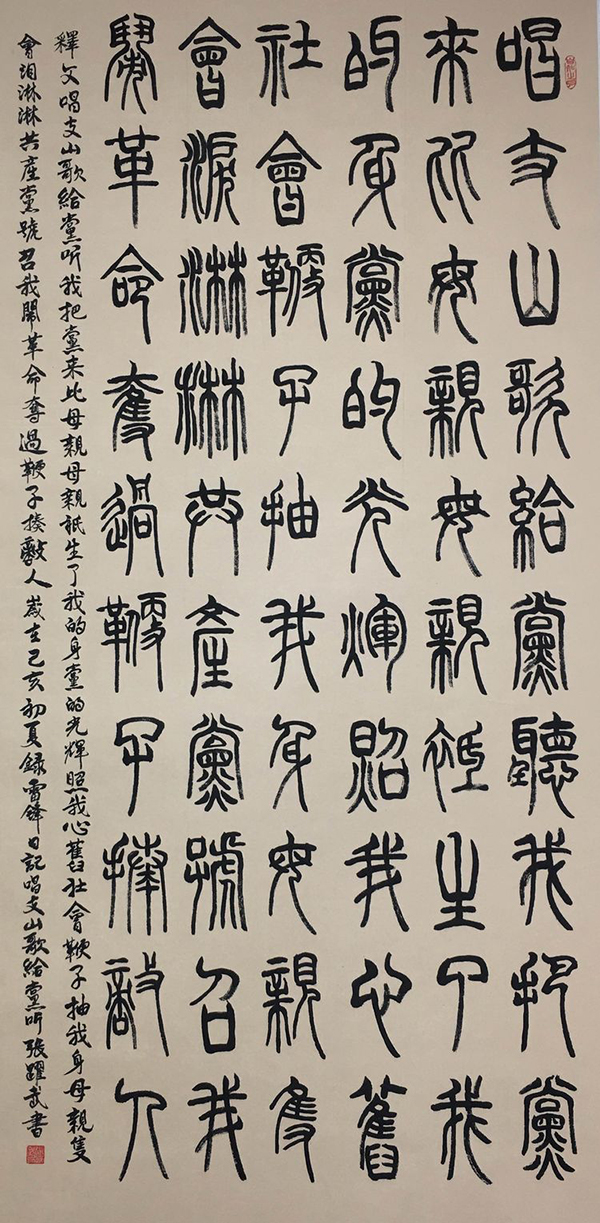 唱支山歌給黨聽我把黨
來比母親母親祗生了我
的身黨的光輝照我心舊
社會鞭子抽我身母親隻
會淚淋淋共產黨號召我
鬧革命奪過鞭子揍敵人
釋文唱支山歌給黨听我把黨来比母親母親祇生了我的身黨的光輝照我心舊社會鞭子抽我身母親隻
會泪淋淋共產黨號召我鬧革命奪過鞭子揍敵人歲在己亥初夏録雷鋒日記唱支山歌給黨听張躍武書